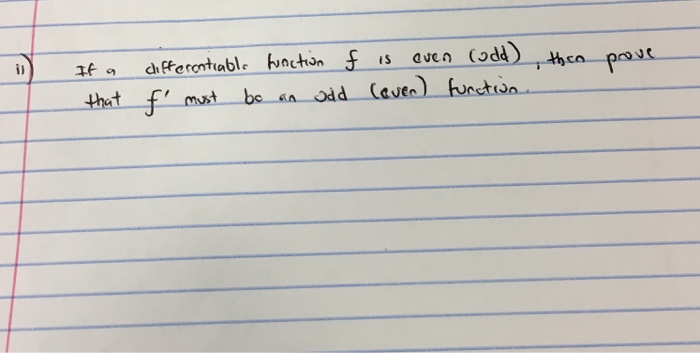 ii) If a differentiable function f is even (odd), then prove
that f' must be an odd (even) function.